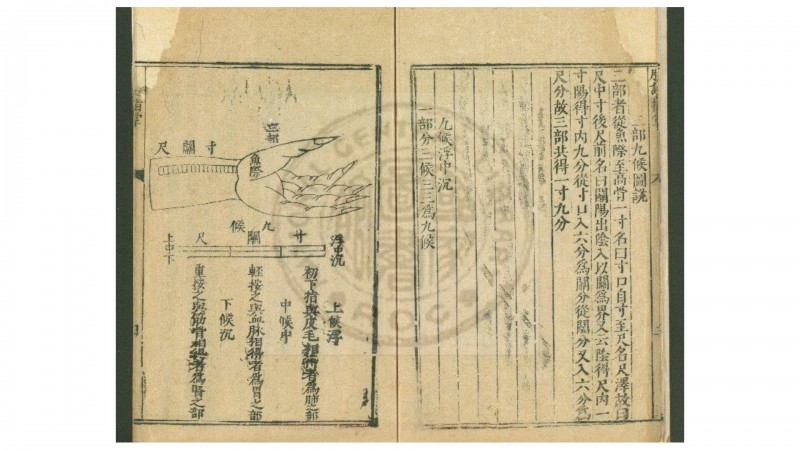 三部九候圖說
二部者從魚際至高骨一寸名曰寸口自寸至尺名尺澤故曰
尺中寸後尺前名曰關陽出陰入以關為界又云陰得尺內一
寸陽得寸內九分從寸口入六分為關分從關分又入六分為
尺分故三部共得一寸九分
九候浮中沉
一部分三候三三為九候
三部
魚際
寸關尺
九候
寸關尺
浮中沉
上中下
上候浮
初下指與皮毛相得者為肺之部
中候中
輕按之與血脉相得者為胃之部
下候沉
重按之與筋骨相得者為腎之部